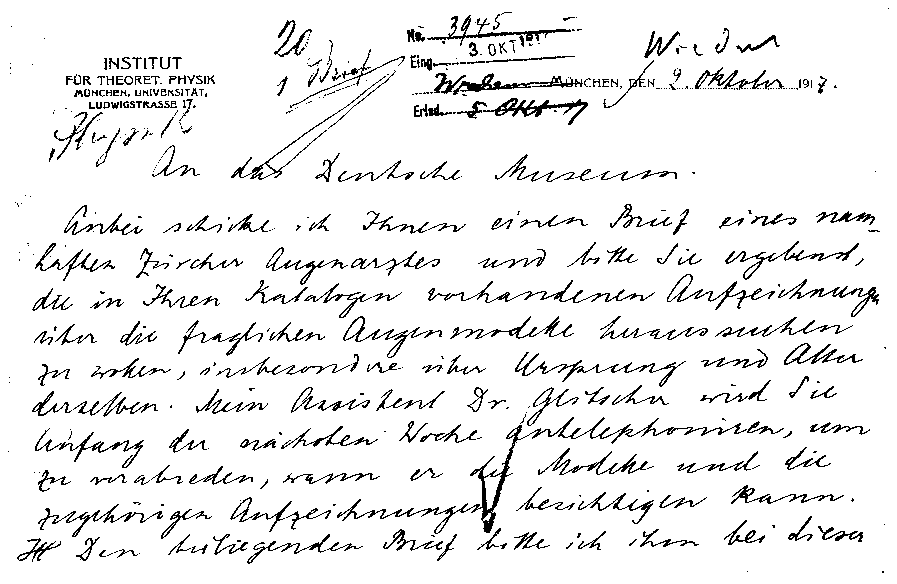 20
1 Brief
No. 3945
Eing. 3. OKT 1917
INSTITUT
FÜR THEORET. PHYSIK
MÜNCHEN, UNIVERSITÄT,
LUDWIGSTRASSE 17.
MÜNCHEN, DEN 2 Oktober 1917.
Erled. 5 OKT 17
An das Deutsche Museum.
Anbei schicke ich Ihnen einen Brief eines nam-
haften Zürcher Augenarztes und bitte Sie ergebenst,
die in Ihren Katalogen vorhandenen Aufzeichnungen
über die fraglichen Augenmodelle heraussuchen
zu wollen, insbesondere über Ursprung und Alter
derselben. Mein Assistent Dr. Glitscher wird Sie
Anfang der nächsten Woche antelephoniren, um
zu verabreden, wann er die Modelle und die
zugehörigen Aufzeichnungen besichtigen kann.
Den beiliegenden Brief bitte ich ihm bei dieser